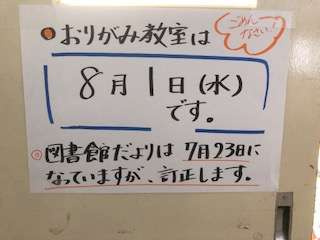 ●おりがみ教室は
ごめんなさい!
8月1日(水)
です。
◎図書館だよりは 7月23日に
なっていますが、訂正します。